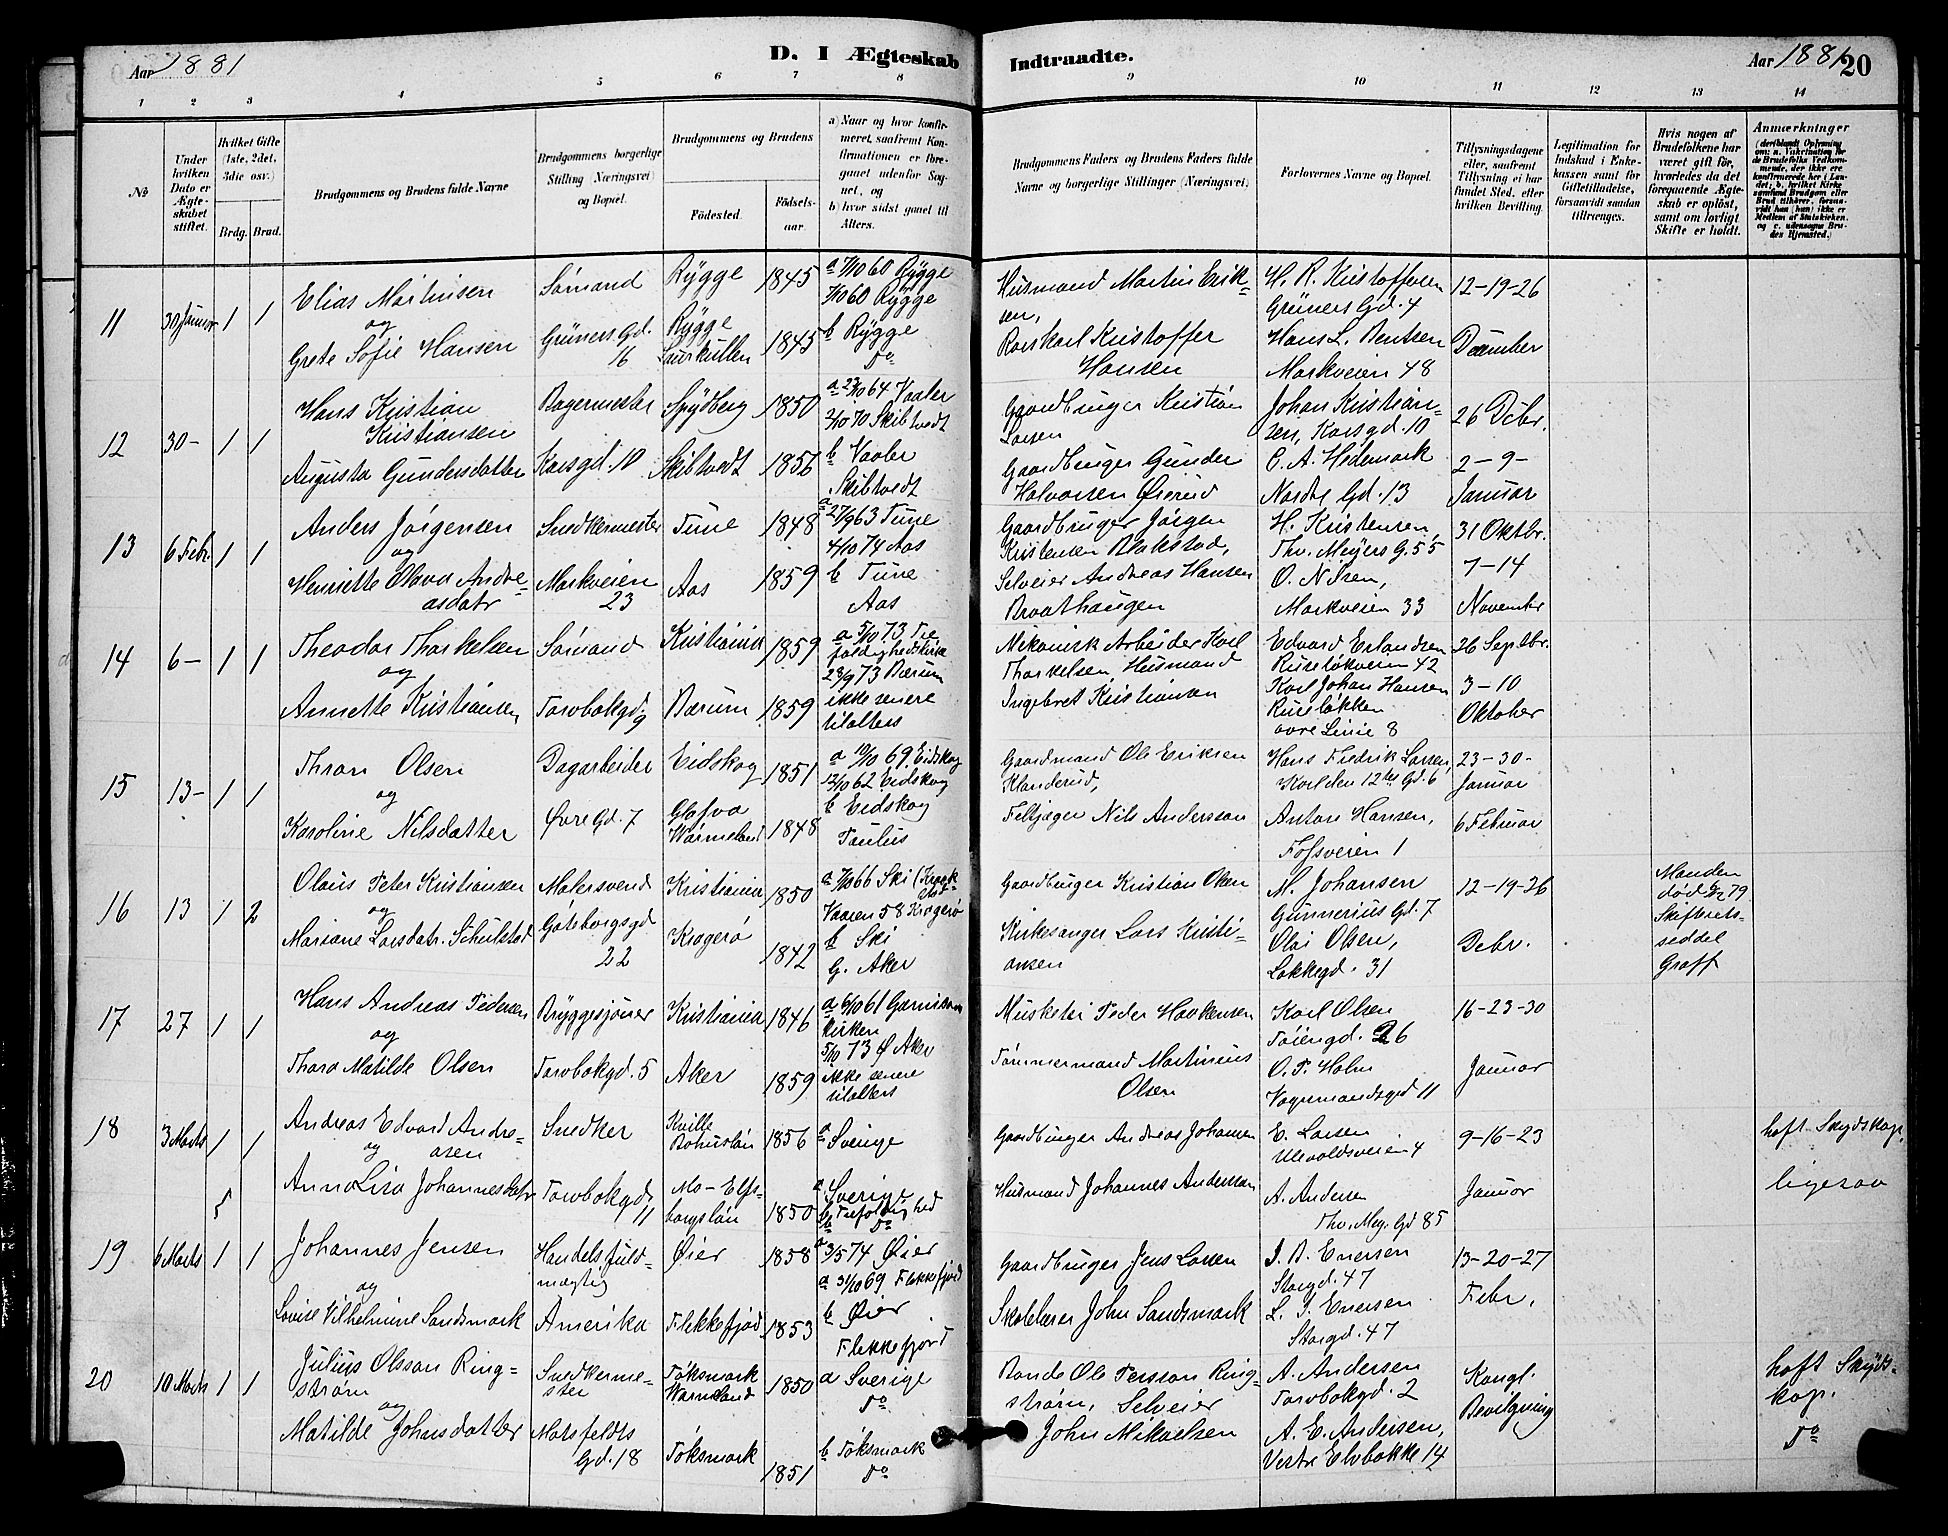 Aar 1881
D. I Ægteskab Indtraadte.
Aar 1881
20
1 2 3 4 5 6 7 8 9 10 11 12 13 14
№
Under hvilken Dato er Ægteskabet stiftet.
Hvilket Gifte (1ste, 2det, 3die osv.)
Brdg. Brud.
Brudgommens og Brudens fulde Navne
Brudgommens borgerlige Stilling (Næringsvei) og Bopæl.
Brudgommens og Brudens
Fødested.
Fødselsaar.
a) Naar og hvor konfirmeret, saafremt Konfirmationen er foregaaet udenfor Sognet, og
b) hvor sidst gaaet til Alters.
Brudgommens Faders og Brudens Faders fulde Navne og borgerlige Stillinger (Næringsvei)
Forlovernes Navne og Bopæl.
Tillysningsdagene eller, saafremt Tillysning ei har fundet Sted, efter hvilken Bevilling.
Legitimation for Indskud i Enkekassen samt for Giftetilladelse, forsaavidt saadan tiltrænges.
Hvis nogen af Brudefolkene har været gift før, hvorledes da det foregaaende Ægteskab er opløst, samt om lovligt Skifte er holdt.
Anmærkninger
11 30 Januar 1 1
Elias Martinsen
og
Grete Sofie Hansen
Sømand
Grüners Gd.
16
Rygge 1845
Rygge
1845
a 7/10 60 Rygge
7/10 60 Rygge
b Rygge
Do
Husmand Martin Eriksen,
Kristoffer
Hansen
H. R. Kristoffersen
Grüners Gd. 4
Hans L. Bentsen
Markveien 48
12-19-26
December
12 30- 1 1
Hans Kristian
Kristiansen
Augusta Gundersdatter
Bagermester
Korsgd. 10
Spydberg 1850
Skibtvedt 1856
64 Vaaler
2/10 70 Skibtvedt
b Vaaler
Skibtvedt
Gaardbruger Kristian
Larsen
Gaardbruger Gunder
Halvorsen Øierud
Johan Kristiansen, Korsgd. 10
C. A. Hedemark
Nordre Gd. 13
26 Debr.
2-9-
Januar
13 6 Febr. 1 1
Anders Jörgensen
og
Henriette Olava Andreasdatr
Snedkermester
Markveien
23
Tune 1848
Aas 1859
a 27/9 63 Tune
4/10 74 Aas
b Tune
Aas
Gaardbruger Jörgen
Kristensen Blakstad,
Selveier Andreas Hansen
Braathaugen
H. Kristensen,
Thv. Meyers G. 55
O. Nilsen,
Markveien 33
31 Oktbr.
7-14
Novembr
14 6- 1 1
Theodor Thorkelsen
og
Annette Kristiansen
Sømand
Torvbakgd 9
Kristiania 1859
Bærum 1859
a 5/10 73 Trefoldighedskirke
28/9 73 Bærum
ikke senere
tilalters
Mekanisk Arbeider Karl
Thorkelsen, Husmand
Ingebret Kristiansen
Edvard Erlandsen
Ruseløkveien 42
Karl Johan Hansen
Ruseløkken
øvre Linie 8
26 Septbr.
3-10
Oktober
15 13- 1 1
Thron Olsen
og
Karoline Nilsdatter
Dagarbeider
Øvre Gd. 7
Eidskog 1851
Glafva
Wärmeland 1848
a 10/10 69 Eidskog
12/10 62 Eidskog
b Eidskog
Paulus
Gaardmand Ole Eriksen
Klanderud,
Feltjæger Nils Andersson
Hans Fredrik Larsen,
Karl den 12tes Gd. 6
Anton Hansen,
Fossveien 1
23-30-
Januar
6 Februar
16 13 1 2
Olaus Peter Kristiansen
og
Mariane Larsdatr. Schulstad
Malersvend
Göteborgsgd
22
Kristiania 1850
Kragerø 1842
a 7/10 66 Ski
Vaaren 58 Kragerø
b Ski
G. Aker
Gaardbruger Kristian Olsen
Kirkesanger Lars Kristiansen
M. Johansen
Gunnerius Gd. 7
Olai Olsen,
Lakkegd. 31
12-19-26
Debr.
Manden
død 79
Skifteretsseddel
Graff
17 27 1 1
Hans Andreas Pedersen
og
Thora Matilde Olsen
Bryggesjouer
Torvbakgd. 5
Kristiania 1846
Aker 1859
a 6/10 61 Garnisonskirken
5/10 73 Ø Aker
ikke senere
tilalters
Musketer Peder Haakensen
Tømmermand Martinius
Olsen
Karl Olsen
Tøiengd. 26
O. P. Holm
Vognmandsgd 11
16-23-30
Januar
18 3 Marts 1 1
Andreas Edvard Andreasen
og
Anna Lisa Johannesdatr
5
Snedker
Torvbakgd
11
Kville
Bohuslän 1856
Mo- Elfsborgslän 1850
a Sverige
a Sverige
b Trefoldighed
b Do
Gaardbruger Andreas Johansen
Husmand Johannes Andersson
E. Larsen
Ullevoldsveien 4
A. Andersen
Thv. Mey. Gd 85
9-16-23
Januar
haft Skydskop.
ligesaa
19 6 Marts 1 1
Johannes Jensen
og
Lovise Vilhelmine Sandsmark
Handelsfuldmægtig
Amerika
Øier 1858
Flekkefjord 1853
a 3/5 74 Øier
a 31/10 69 Flekkefjord
b Øier
Flekkefjord
Gaardbruger Jens Larsen
Skolelærer John Sandsmark
J. B. Enersen
Storgd. 47
L. J. Enersen
Storgd. 47
13-20-27
Febr.
20 10 Marts 1 1
Julius Olsson Ringström
og
Matilde Johnsdatter
Snedkermester
Motzfeldts
Gd. 18
Töksmark
Wärmeland 1850
Töksmark
1851
a Sverige
Do
b Töksmark
Do
Bonde Ole Persson Ringström, Selveier
John Mikaelsen
A. Andersen
Torvbakgd. 2
A. E. Andersen,
Vestre Elvbakke 14
Kongl.
Bevilgning
haft Skydskop.
Do